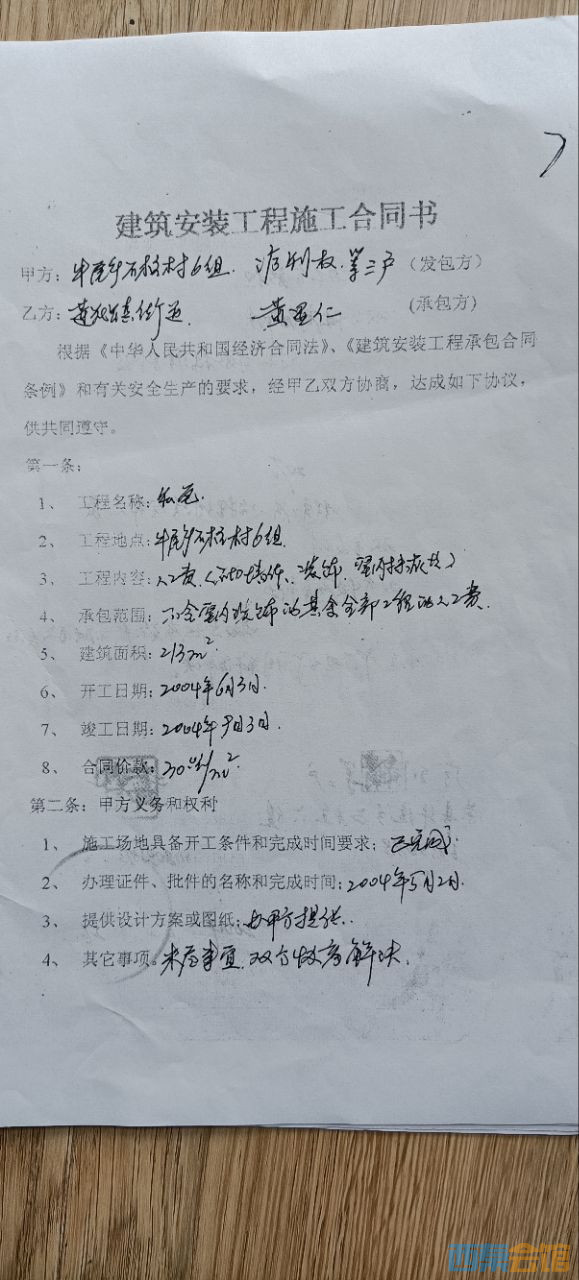 建筑安装工程施工合同书
甲方：牛尾乡石板村6组. 涂利权.等三户（发包方）
乙方：镇街道. 黄显仁 (承包方)
根据《中华人民共和国经济合同法》、《建筑安装工程承包合同
条例》和有关安全生产的要求，经甲乙双方协商，达成如下协议，
供共同遵守。
第一条：
1、 工程名称：私宅.
2、 工程地点：牛尾乡石板村6组.
3、 工程内容：人工费
4、 承包范围：不含室内装饰的其余全部工程的人工费.
5、 建筑面积：213m²
6、 开工日期：2004年6月3日.
7、 竣工日期：2004年9月3日.
8、 合同价款：/m²
第二条：甲方义务和权利
1、 施工场地具备开工条件和完成时间要求；已完成.
2、 办理证件、批件的名称和完成时间：2004年5月2日.
3、 提供设计方案或图纸：由甲方提供.
4、 其它事项。未尽事宜.双方协商解决.
西祠会馆